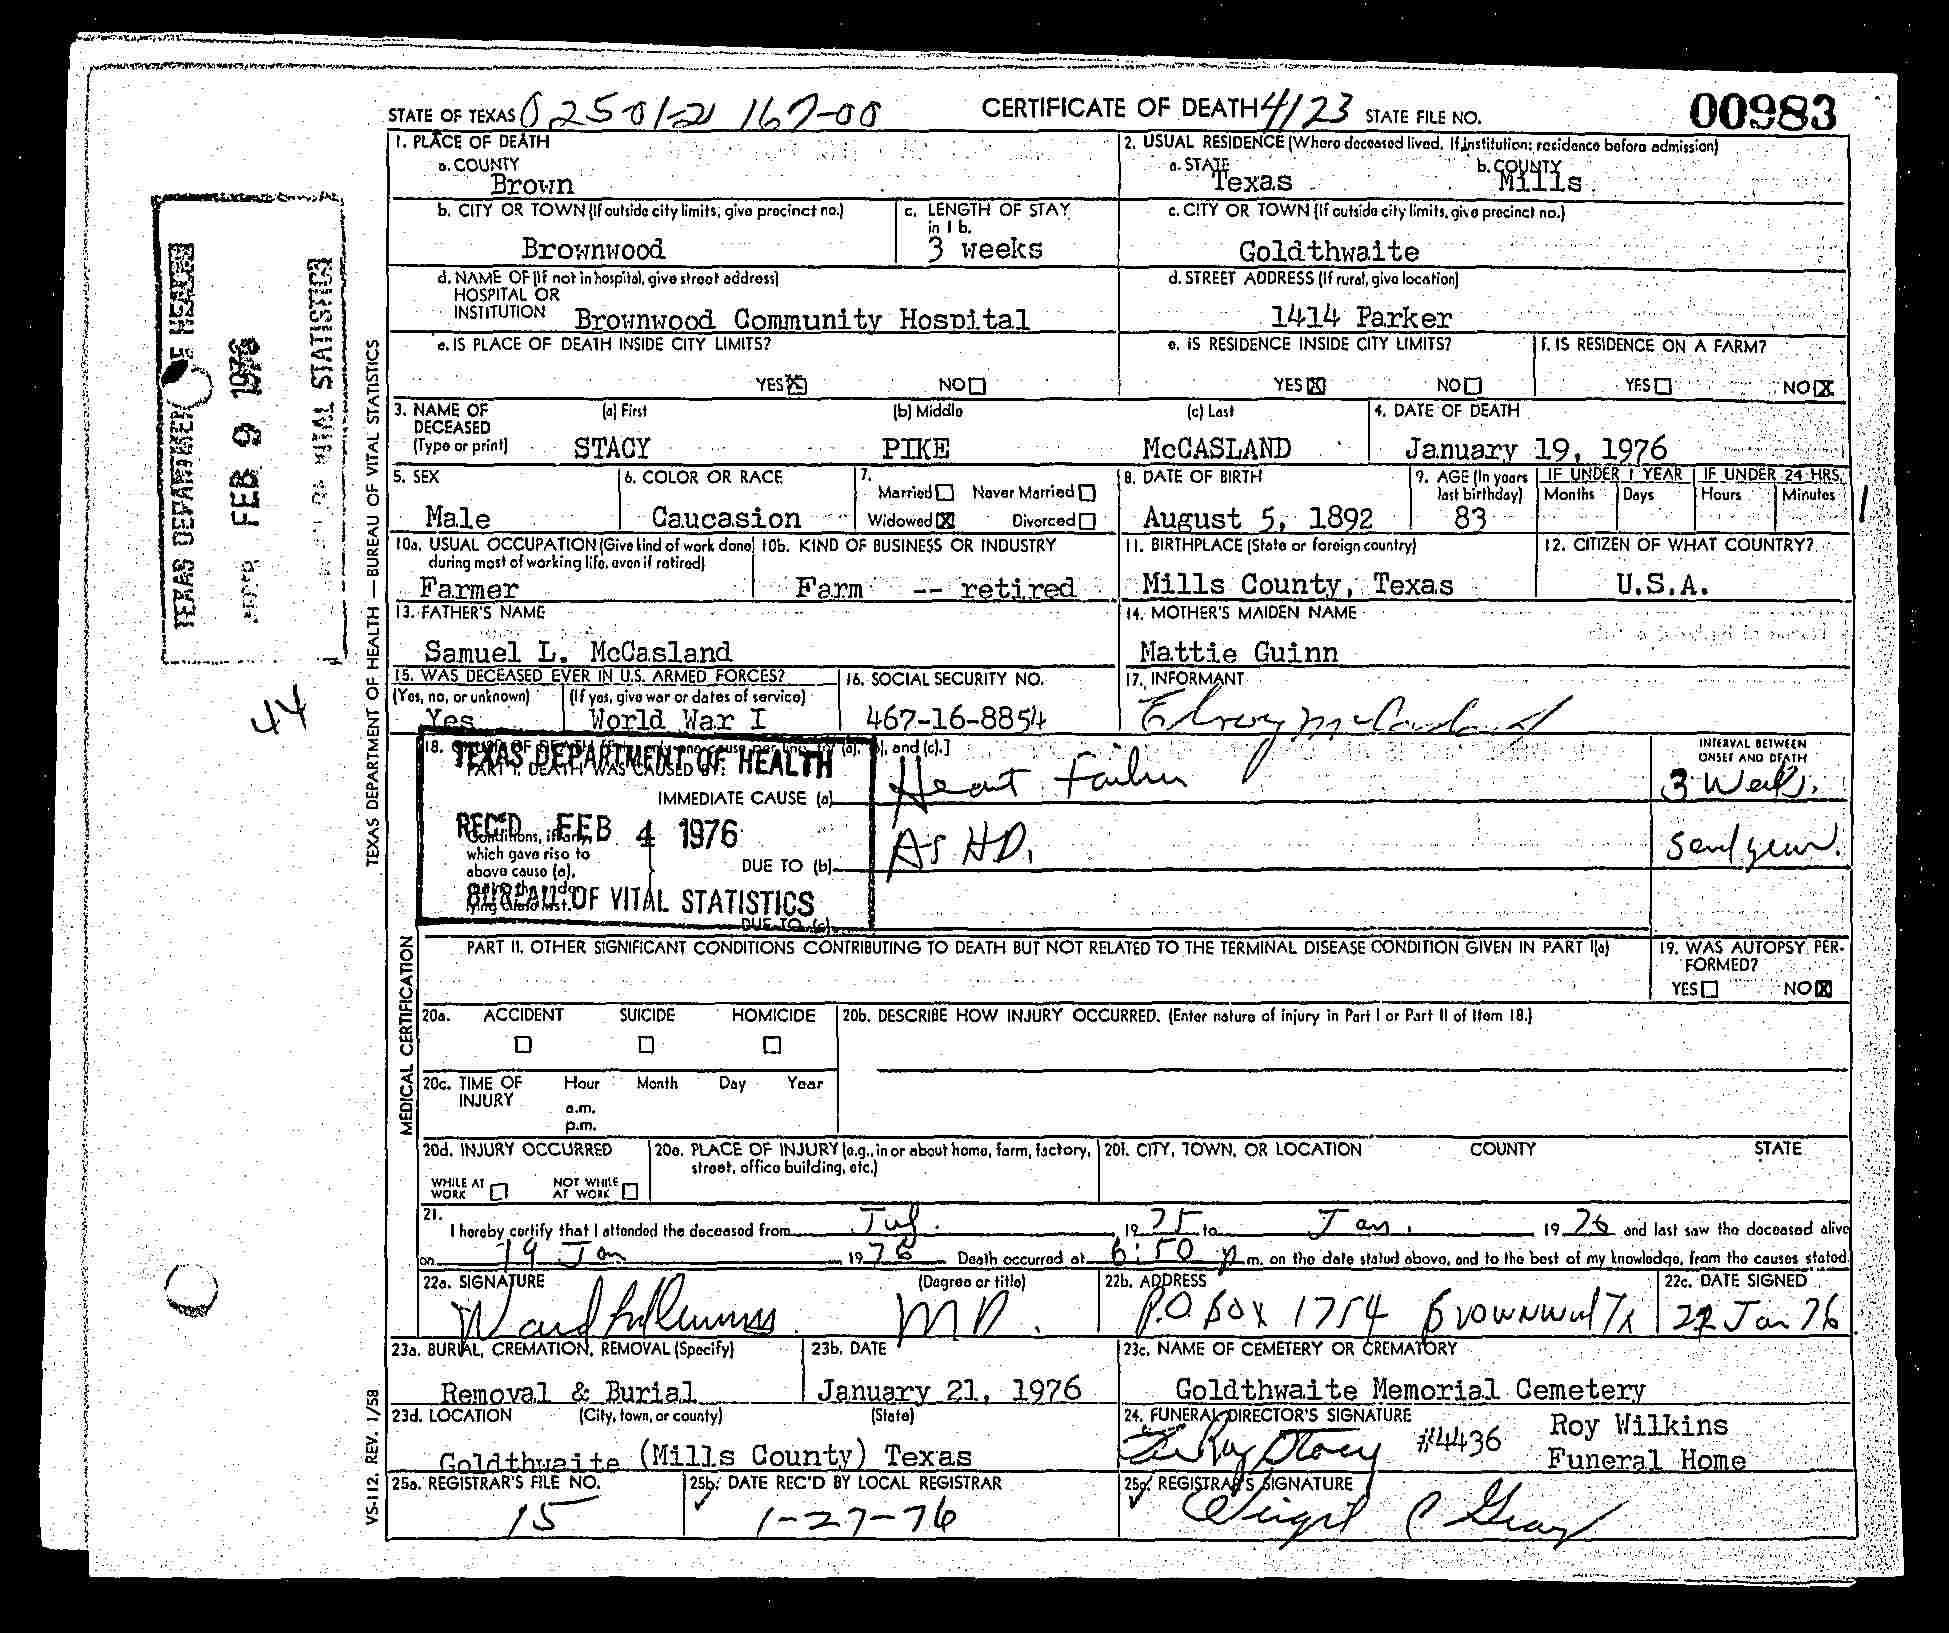 STATE OF TEXAS 025-01-21 167-00 CERTIFICATE OF DEATH 4123 STATE FILE NO. 00983
1. PLACE OF DEATH
a. COUNTY
Brown
2. USUAL RESIDENCE (Where deceased lived. If institution: residence before admission)
a. STATE
Texas
b. COUNTY
Mills
b. CITY OR TOWN (If outside city limits, give precinct no.)
Brownwood
c. LENGTH OF STAY
in 1 b.
3 weeks
c. CITY OR TOWN (If outside city limits, give precinct no.)
Goldthwaite
d. NAME OF (If not in hospital, give street address)
HOSPITAL OR
INSTITUTION Brownwood Community Hospital
d. STREET ADDRESS (If rural, give location)
1414 Parker
e. IS PLACE OF DEATH INSIDE CITY LIMITS?
YES ☒ NO ☐
e. IS RESIDENCE INSIDE CITY LIMITS?
YES ☒ NO ☐
f. IS RESIDENCE ON A FARM?
YES ☐ NO ☒
3. NAME OF
DECEASED
(Type or print)
(a) First
STACY
(b) Middle
PIKE
(c) Last
McCASLAND
4. DATE OF DEATH
January 19, 1976
5. SEX
Male
6. COLOR OR RACE
Caucasion
7.
Married ☐ Never Married ☐
Widowed ☒ Divorced ☐
8. DATE OF BIRTH
August 5, 1892
9. AGE (In years
last birthday)
83
IF UNDER 1 YEAR
Months Days
IF UNDER 24 HRS.
Hours Minutes
10a. USUAL OCCUPATION (Give kind of work done
during most of working life, even if retired)
Farmer
10b. KIND OF BUSINESS OR INDUSTRY
Farm -- retired
11. BIRTHPLACE (State or foreign country)
Mills County, Texas
12. CITIZEN OF WHAT COUNTRY?
U.S.A.
13. FATHER'S NAME
Samuel L. McCasland
14. MOTHER'S MAIDEN NAME
Mattie Guinn
15. WAS DECEASED EVER IN U.S. ARMED FORCES?
(Yes, no, or unknown) (If yes, give war or dates of service)
Yes World War I
16. SOCIAL SECURITY NO.
467-16-8854
17. INFORMANT
McCasland
18. CAUSE OF DEATH [Enter only one cause per line for (a), (b), and (c).]
PART I. DEATH WAS CAUSED BY:
IMMEDIATE CAUSE (a)
Heart Failure
INTERVAL BETWEEN
ONSET AND DEATH
3 Weeks.
Conditions, if any,
which gave rise to
above cause (a),
DUE TO (b)
ASHD.
DUE TO (c)
TEXAS DEPARTMENT OF HEALTH
REC'D FEB 4 1976
BUREAU OF VITAL STATISTICS
PART II. OTHER SIGNIFICANT CONDITIONS CONTRIBUTING TO DEATH BUT NOT RELATED TO THE TERMINAL DISEASE CONDITION GIVEN IN PART I(a)
19. WAS AUTOPSY PER-
FORMED?
YES ☐ NO ☒
20a. ACCIDENT SUICIDE HOMICIDE
☐ ☐ ☐
20b. DESCRIBE HOW INJURY OCCURRED. (Enter nature of injury in Part I or Part II of Item 18.)
20c. TIME OF
INJURY
Hour Month Day Year
a.m.
p.m.
20d. INJURY OCCURRED
WHILE AT
WORK ☐
NOT WHILE
AT WORK ☐
20e. PLACE OF INJURY (e.g., in or about home, farm, factory,
street, office building, etc.)
20f. CITY, TOWN, OR LOCATION COUNTY STATE
21.
I hereby certify that I attended the deceased from 19 75 to Jan. 19 76 and last saw the deceased alive
on 19 Jan 19 76 Death occurred at 6:50 p m. on the date stated above, and to the best of my knowledge, from the causes stated.
22a. SIGNATURE (Degree or title)
MD.
22b. ADDRESS
P.O. Box 1754 Brownwood Tx
22c. DATE SIGNED
22 Jan 76
23a. BURIAL, CREMATION, REMOVAL (Specify)
Removal & Burial
23b. DATE
January 21, 1976
23c. NAME OF CEMETERY OR CREMATORY
Goldthwaite Memorial Cemetery
23d. LOCATION (City, town, or county) (State)
Goldthwaite (Mills County) Texas
24. FUNERAL DIRECTOR'S SIGNATURE
#4436
Roy Wilkins
Funeral Home
25a. REGISTRAR'S FILE NO.
15
25b. DATE REC'D BY LOCAL REGISTRAR
1-27-76
25c. REGISTRAR'S SIGNATURE
Virgil C Gray
TEXAS DEPARTMENT OF HEALTH — BUREAU OF VITAL STATISTICS
MEDICAL CERTIFICATION
VS-112. REV. 1/58
TEXAS DEPARTMENT OF HEALTH
FEB 9 1976
VITAL STATISTICS
44